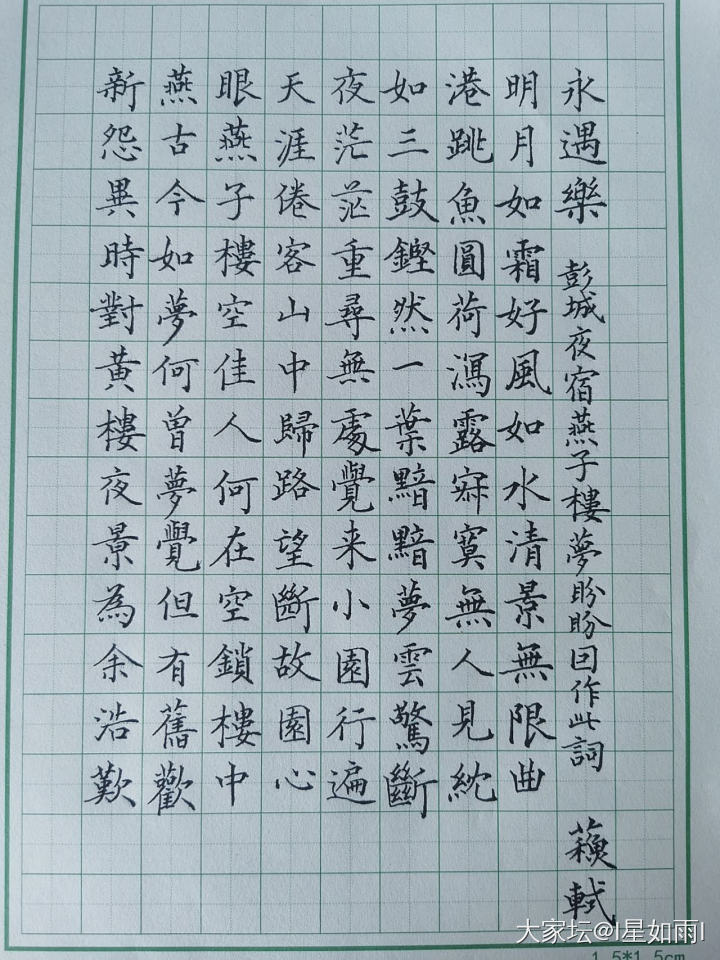 永遇樂 彭城夜宿燕子樓夢盼盼因作此詞 蘓軾
明月如霜好風如水清景無限曲
港跳魚圓荷瀉露寂寞無人見紞
如三鼓鏗然一葉黯黯夢雲驚斷
夜茫茫重尋無處覺来小園行遍
天涯倦客山中歸路望斷故園心
眼燕子樓空佳人何在空鎖樓中
燕古今如夢何曾夢覺但有舊歡
新怨異時對黃樓夜景為余浩歎
大家坛@l星如雨l
1.5*1.5cm